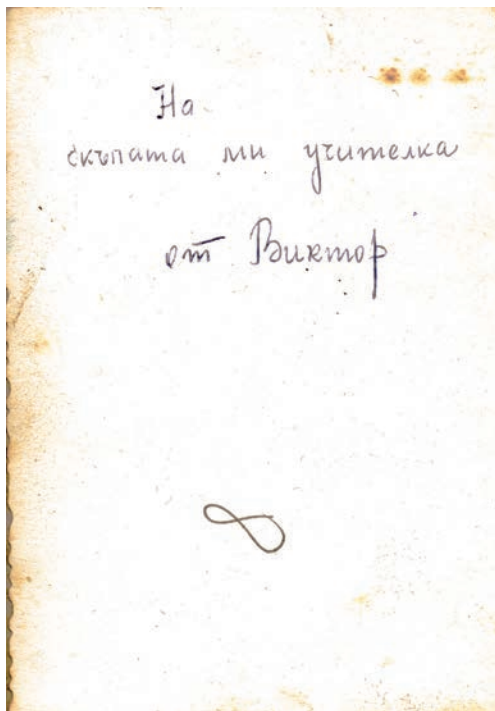 На
скъпата ми учителка
от Виктор
8